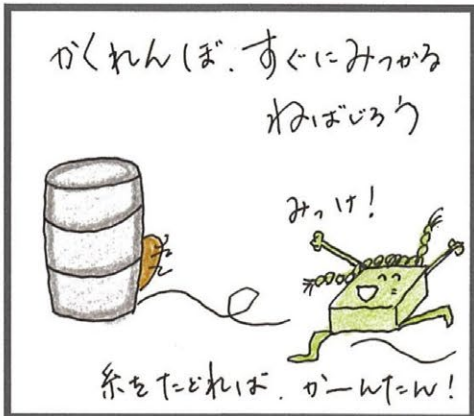 かくれんぼ、すぐにみつかる
ねばじろう
みっけ!
糸をたどれば、かーんたん!